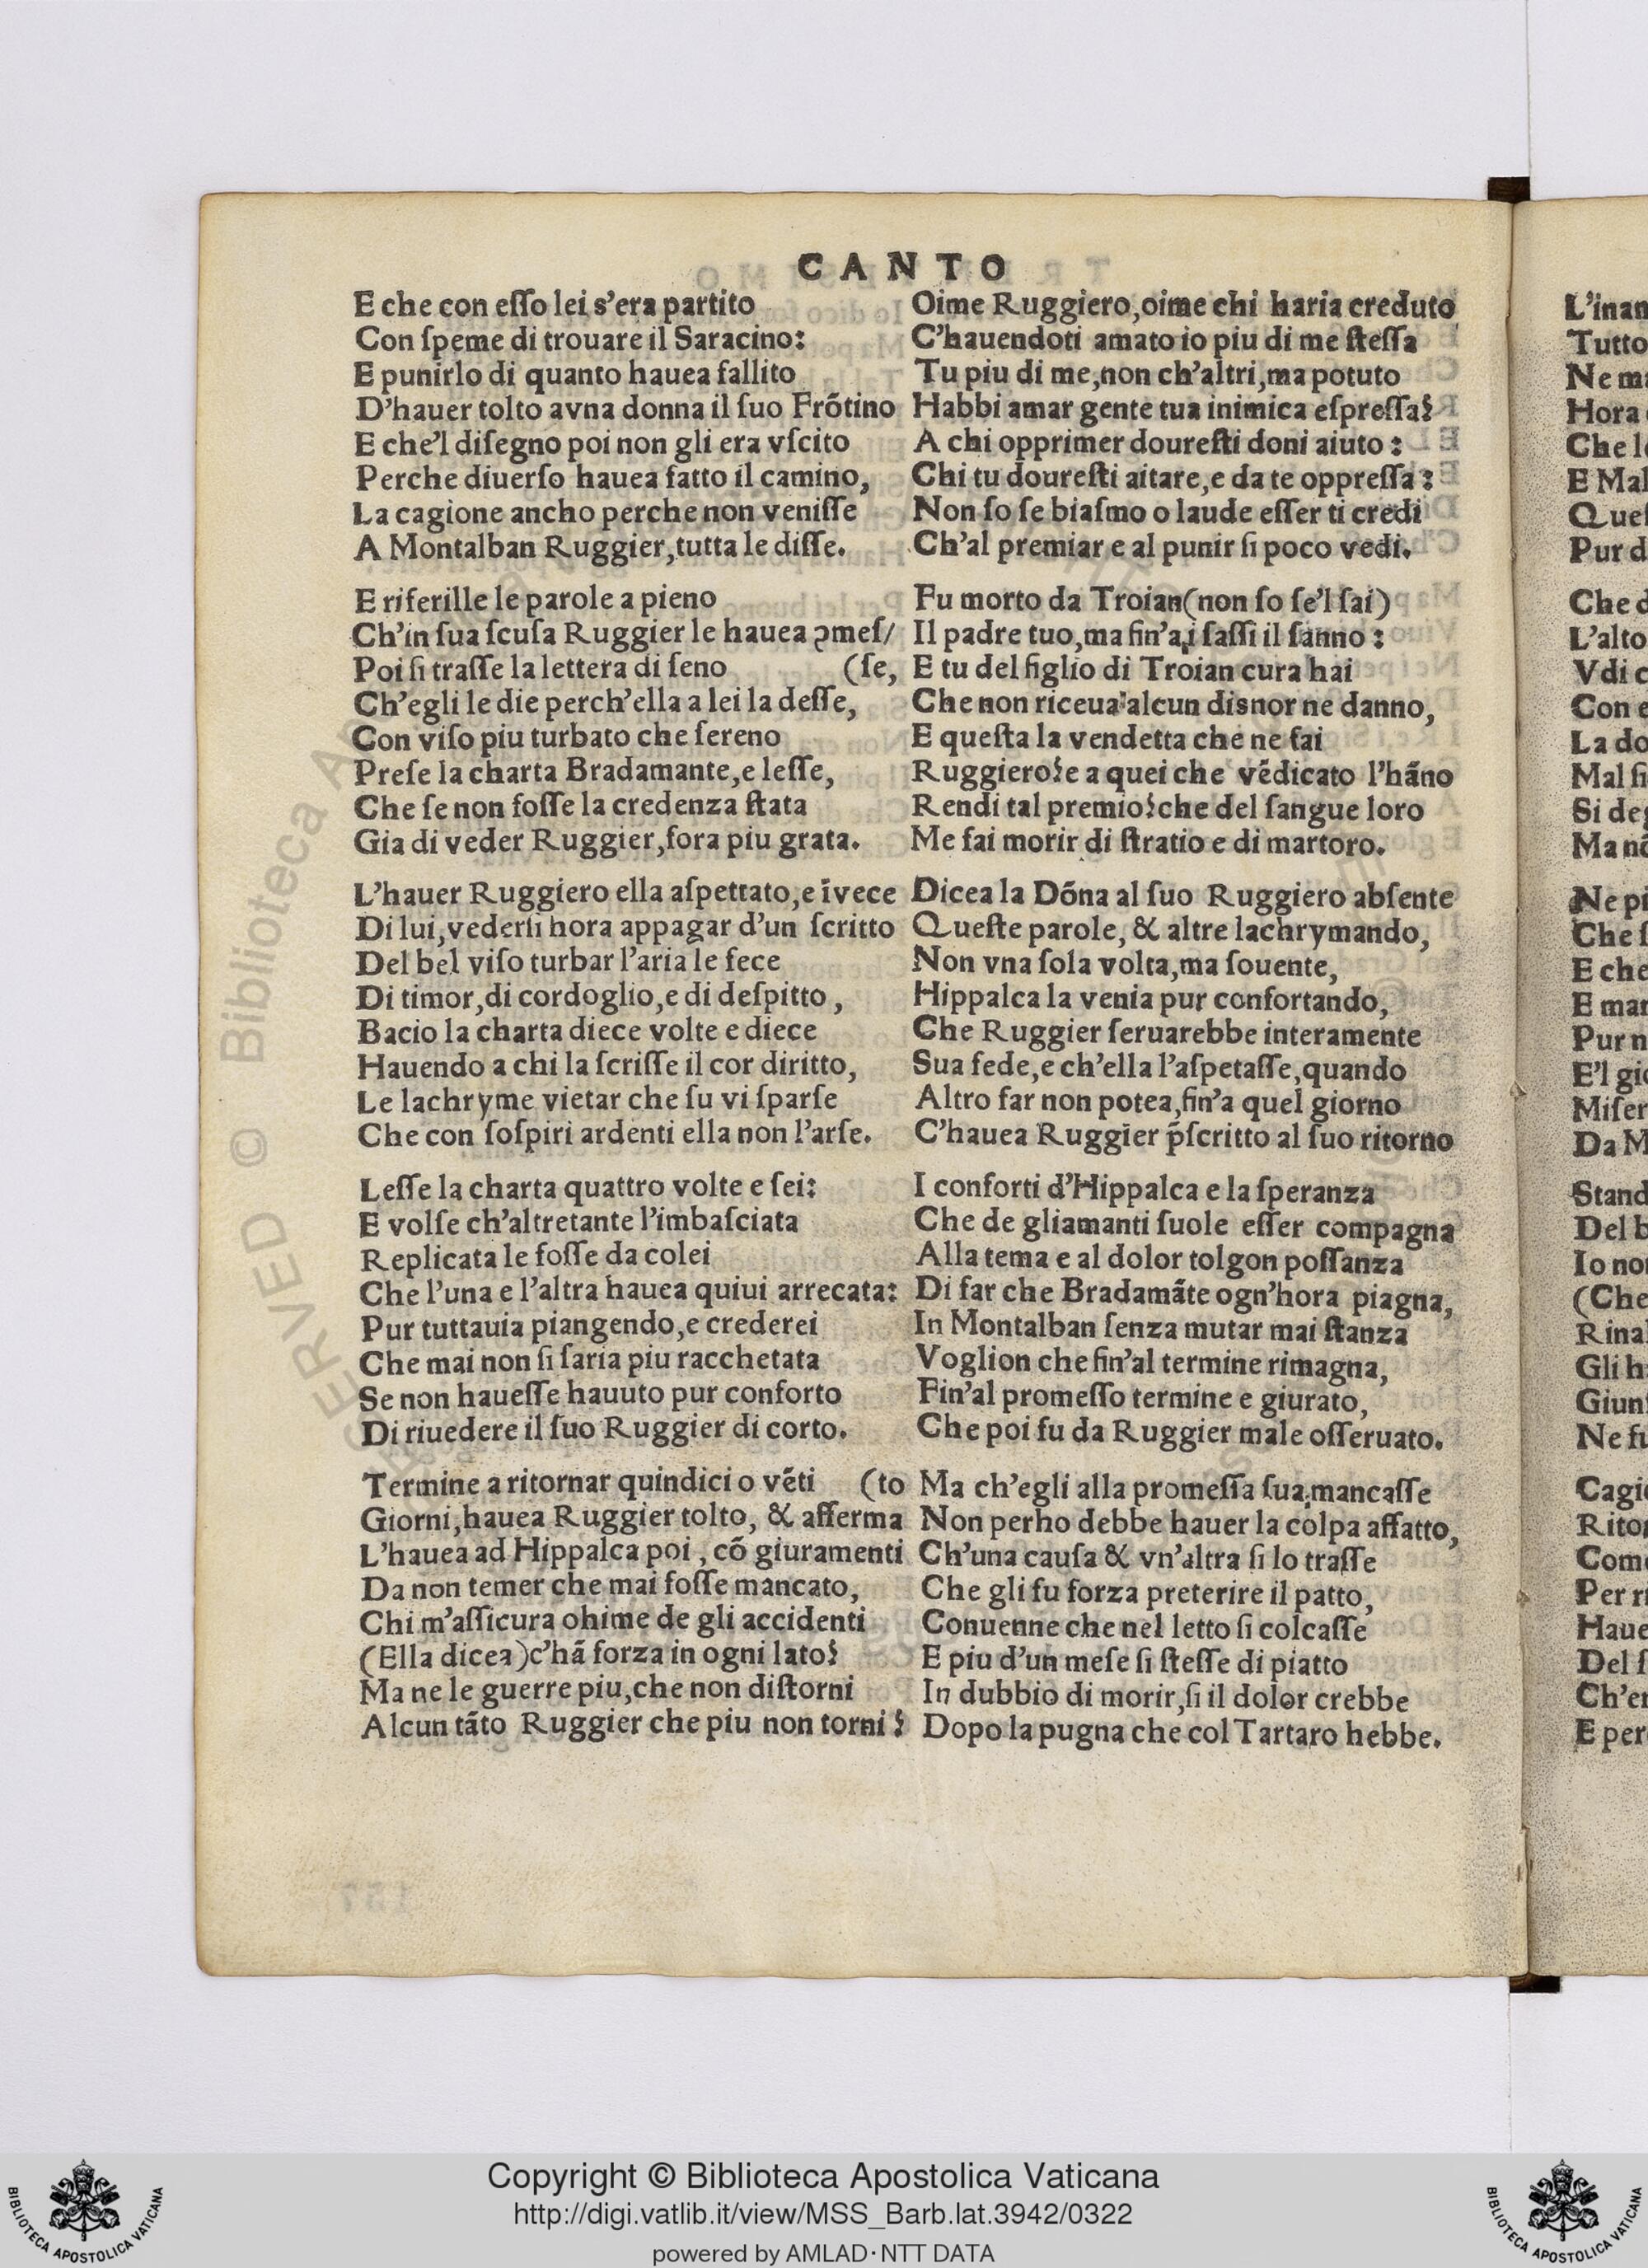 CANTO
E che con eſſo lei s'era partito
Con ſpeme di trouare il Saracino:
E punirlo di quanto hauea fallito
D'hauer tolto avna donna il ſuo Frõtino
E che'l diſegno poi non gli era vſcito
Perche diuerſo hauea fatto il camino,
La cagione ancho perche non veniſſe
A Montalban Ruggier,tutta le diſſe.
E riferille le parole a pieno
Ch'in ſua ſcuſa Ruggier le hauea ꝯmeſ/
Poi ſi traſſe la lettera di ſeno (ſe,
Ch'egli le die perch'ella a lei la deſſe,
Con viſo piu turbato che ſereno
Preſe la charta Bradamante,e leſſe,
Che ſe non foſſe la credenza ſtata
Gia di veder Ruggier,fora piu grata.
L'hauer Ruggiero ella aſpettato,e ĩvece
Di lui,vederſi hora appagar d'un ſcritto
Del bel viſo turbar l'aria le fece
Di timor,di cordoglio,e di deſpitto,
Bacio la charta diece volte e diece
Hauendo a chi la ſcriſſe il cor diritto,
Le lachryme vietar che ſu vi ſparſe
Che con ſoſpiri ardenti ella non l'arſe.
Leſſe la charta quattro volte e ſei:
E volſe ch'altretante l'imbaſciata
Replicata le foſſe da colei
Che l'una e l'altra hauea quiui arrecata:
Pur tuttauia piangendo,e crederei
Che mai non ſi ſaria piu racchetata
Se non haueſſe hauuto pur conforto
Di riuedere il ſuo Ruggier di corto.
Termine a ritornar quindici o vẽti (to
Giorni,hauea Ruggier tolto, & afferma
L'hauea ad Hippalca poi , cõ giuramenti
Da non temer che mai foſſe mancato,
Chi m'aſſicura ohime de gli accidenti
(Ella dicea)c'hã forza in ogni lato?
Ma ne le guerre piu,che non diſtorni
Alcun tãto Ruggier che piu non torni?
Oime Ruggiero,oime chi haria creduto
C'hauendoti amato io piu di me ſteſſa
Tu piu di me,non ch'altri,ma potuto
Habbi amar gente tua inimica eſpreſſa?
A chi opprimer doureſti doni aiuto:
Chi tu doureſti aitare,e da te oppreſſa:
Non ſo ſe biaſmo o laude eſſer ti credi
Ch'al premiar e al punir ſi poco vedi.
Fu morto da Troian(non ſo ſe'l ſai)
Il padre tuo,ma fin'a i ſaſſi il ſanno:
E tu del figlio di Troian cura hai
Che non riceua alcun disnor ne danno,
E queſta la vendetta che ne fai
Ruggiero?e a quei che vẽdicato l'hãno
Rendi tal premio?che del ſangue loro
Me fai morir di ſtratio e di martoro.
Dicea la Dõna al ſuo Ruggiero abſente
Queſte parole, & altre lachrymando,
Non vna ſola volta,ma ſouente,
Hippalca la venia pur confortando,
Che Ruggier ſeruarebbe interamente
Sua fede,e ch'ella l'aſpetaſſe,quando
Altro far non potea,fin'a quel giorno
C'hauea Ruggier p̃ſcritto al ſuo ritorno
I conforti d'Hippalca e la ſperanza
Che de gliamanti ſuole eſſer compagna
Alla tema e al dolor tolgon poſſanza
Di far che Bradamãte ogn'hora piagna,
In Montalban ſenza mutar mai ſtanza
Voglion che fin'al termine rimagna,
Fin'al promeſſo termine e giurato,
Che poi fu da Ruggier male oſſeruato.
Ma ch'egli alla promeſſa ſua mancaſſe
Non perho debbe hauer la colpa affatto,
Ch'una cauſa & vn'altra ſi lo traſſe
Che gli fu forza preterire il patto,
Conuenne che nel letto ſi colcaſſe
E piu d'un meſe ſi ſteſſe di piatto
In dubbio di morir,ſi il dolor crebbe
Dopo la pugna che col Tartaro hebbe.
Copyright © Biblioteca Apostolica Vaticana
http://digi.vatlib.it/view/MSS_Barb.lat.3942/0322
powered by AMLAD·NTT DATA
BIBLIOTECA APOSTOLICA VATICANA
BIBLIOTECA APOSTOLICA VATICANA